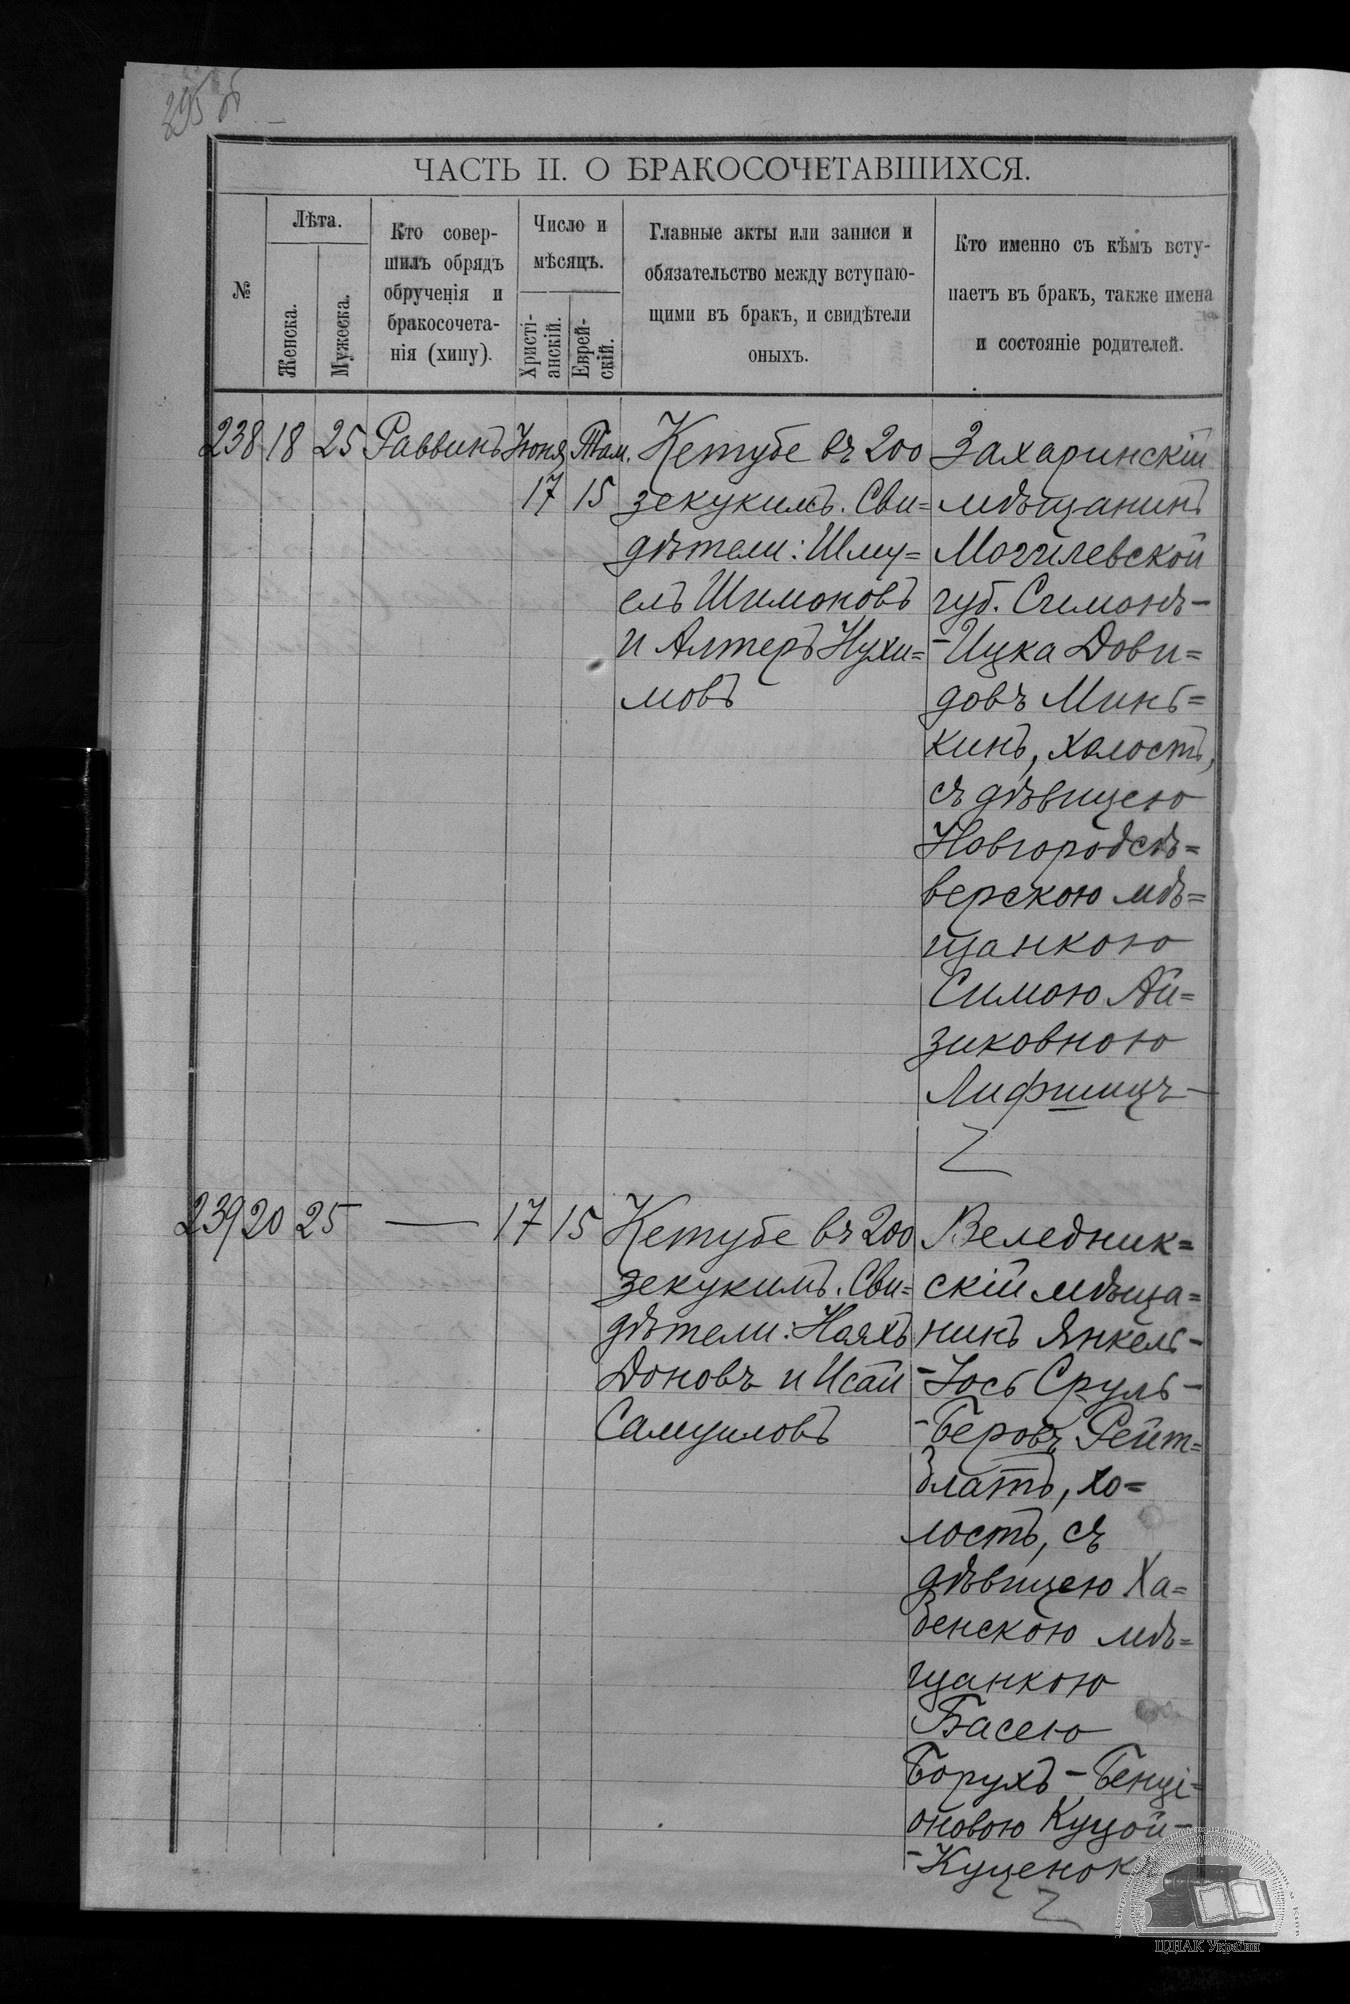 295 об
ЧАСТЬ II. О БРАКОСОЧЕТАВШИХСЯ.
№
Лѣта.
Женска.
Мужеска.
Кто совер-
шилъ обрядъ
обрученія и
бракосочета-
нія (хипу).
Число и
мѣсяцъ.
Христі-
анскій.
Еврей-
скій.
Главные акты или записи и
обязательство между вступаю-
щими въ бракъ, и свидѣтели
оныхъ.
Кто именно съ кѣмъ всту-
паетъ въ бракъ, также имена
и состояніе родителей.
238 18 25 Раввинъ Іюня 17 Там. 15
Кетубе въ 200
зекукимъ. Сви=
дѣтели: Шму=
ель Шимоновъ
и Алтеръ Нухи=
мовъ
Захаринскій
мѣщанинъ
Могилевской
губ. Симонъ-
-Ицка Дови=
довъ Минь=
кинъ, холостъ,
съ дѣвицею
Новгородсѣ=
верскою мѣ=
щанкою
Симою Ай=
зиковною
Лифшицъ-
239 20 25 — 17 15
Кетубе въ 200
зекукимъ. Сви=
дѣтели: Нояхъ
Доновъ и Исай
Самуиловъ
Веледник=
скій мѣща=
нинъ Янкель-
-Іось Сруль-
-Беровъ Рейт=
блатъ, хо=
лостъ, съ
дѣвицею Ха=
бенскою мѣ=
щанкою
Басею
Борухъ-Бенці=
оновою Куцой-
-Куценокъ
ЦДІАК України